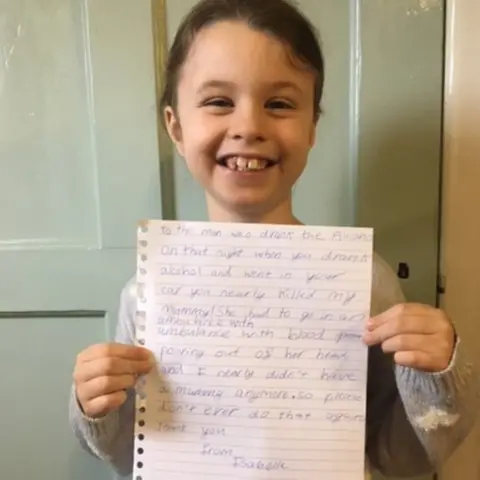 to the man who drank the
On that night when you drank
alcohol and went in your
car you nearly killed my
mummy! She had to go in an
ambulance with
ambulance with blood
poring out of her head
and I nearly didn't have
a mummy anymore. so please
don't ever do that again
Thank you
From
Isabelle